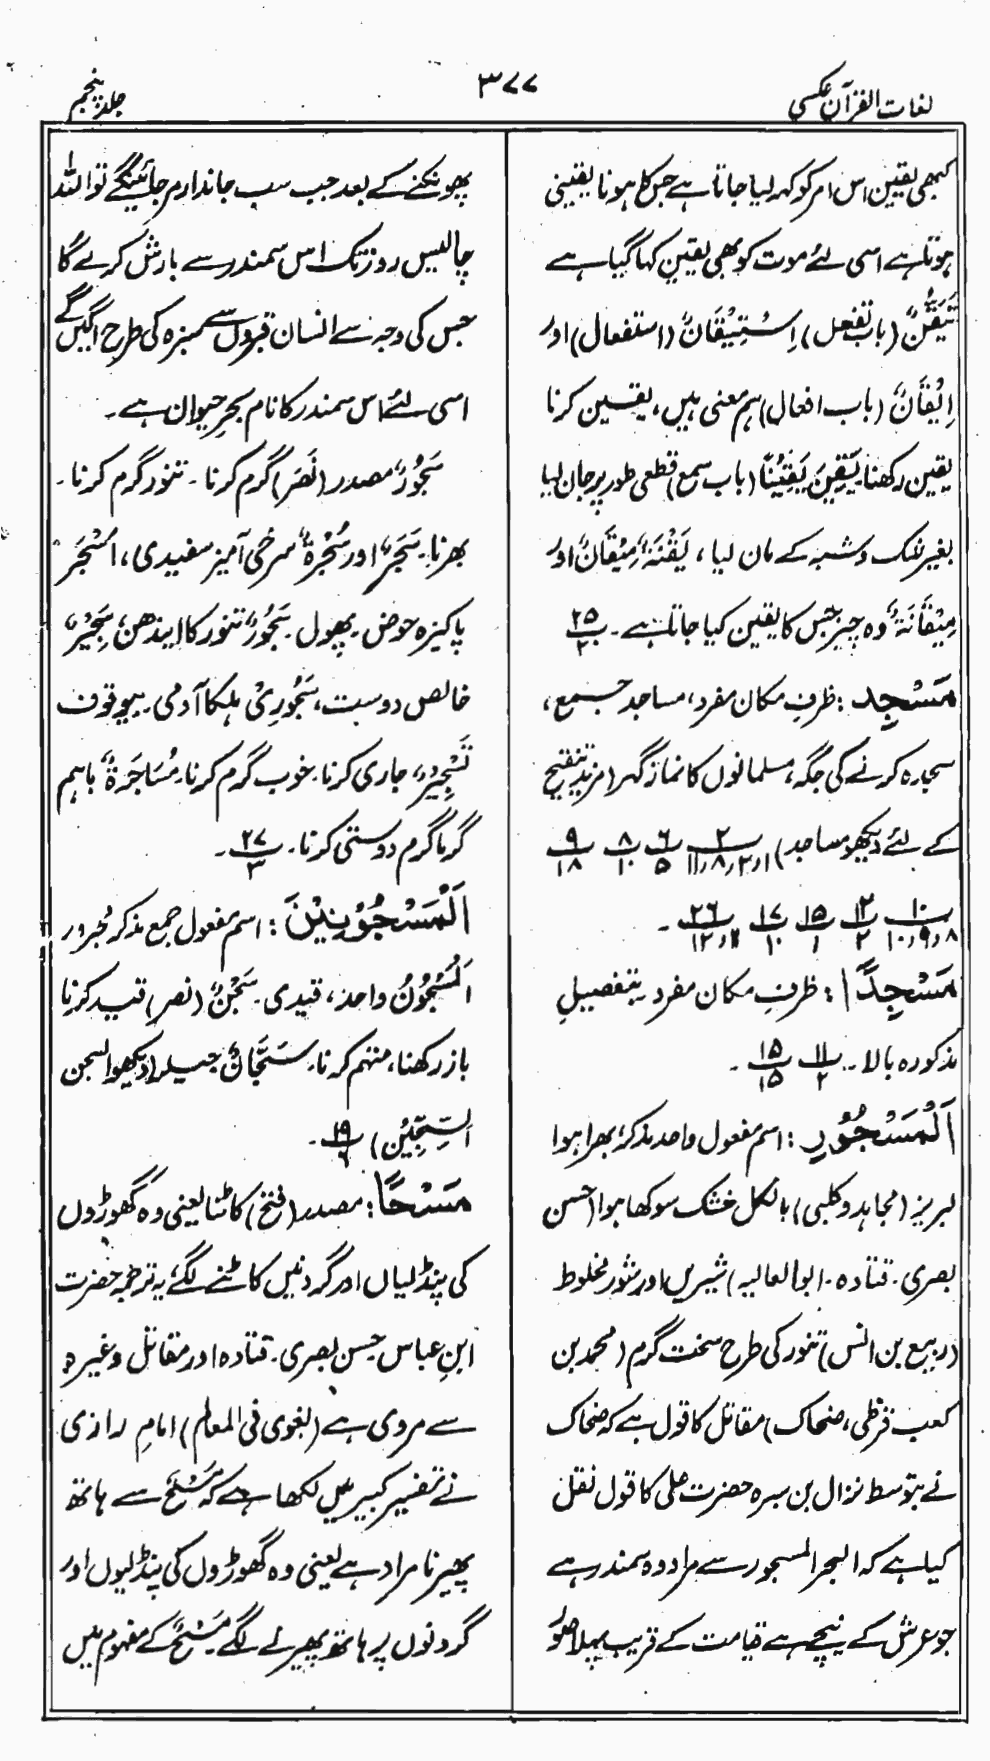 لغات القرآن عکسی
۳۷۷
جلد پنجم
کبھی یقین اس امر کو کہہ لیا جاتا ہے جس کا ہونا یقینی
ہوتا ہے اسی لئے موت کو بھی یقین کہا گیا ہے
تَیَقُّنٌ (باب تفعل) اِسْتِیْقَانٌ (استفعال) اور
اِیْقَانٌ (باب افعال) ہم معنی ہیں، یقین کرنا
یقین رکھنا یَقِنَ یَقِیْنًا (باب سمع) قطعی طور پر جان لیا
بغیر شک و شبہ کے مان لیا، یَقْنَۃٌ مِیْقَانٌ اور
مِیْقَانَۃٌ وہ چیز جس کا یقین کیا جاتا ہے۔ ۲۵/۲
مَسْجِدٍ: ظرفِ مکان مفرد، مساجد جمع،
سجدہ کرنے کی جگہ، مسلمانوں کا نماز گھر (مزید تنقیح
کے لئے دیکھو مساجد) ۲/۱،۲،۸،۱۱ ۶/۵ ۸/۱۰ ۹/۱۸
۱۰/۸،۹،۱۰ ۱۲/۲ ۱۵/۱ ۱۷/۱۰ ۲۶/۱۱،۱۲ ۔
مَسْجِدًا: ظرفِ مکان مفرد بتفصیلِ
مذکورہ بالا۔ ۱۱/۲ ۱۵/۱۵ ۔
اَلْمَسْجُوْرِ: اسم مفعول واحد مذکر، بھرا ہوا
لبریز (مجاہد و کلبی) بالکل خشک سوکھا ہوا (حسن
بصری۔ قتادہ۔ ابو العالیہ) شیریں اور شور مخلوط
(ربیع بن انس) تنور کی طرح سخت گرم (محمد بن
کعب قرظی، ضحاک) مقاتل کا قول ہے کہ ضحاک
نے بتوسط نزال بن سبرہ حضرت علی کا قول نقل
کیا ہے کہ البحر المسجور سے مراد وہ سمندر ہے
جو عرش کے نیچے ہے قیامت کے قریب پہلا صور
پھونکنے کے بعد جب سب جاندار مر جائینگے تو اللہ
چالیس روز تک اس سمندر سے بارش کرے گا
جس کی وجہ سے انسان قبروں سے سبزہ کی طرح اگیں گے
اسی لئے اس سمندر کا نام بحرِ حیوان ہے۔
سَجُوْرٌ مصدر (نَصَرَ) گرم کرنا۔ تنور گرم کرنا۔
بھرنا۔ سَجَرٌ اور سُجْرَۃٌ سرخی آمیز سفیدی، اَسْجَر
پاکیزہ حوض۔ پھول۔ سَجُوْرٌ تنور کا ایندھن، سَجِیْرٌ
خالص دوست، سَجُوْرِیْ ہلکا آدمی۔ بیوقوف
تَسْجِیْرٌ جاری کرنا۔ خوب گرم کرنا۔ مُسَاجَرَۃٌ باہم
گرما گرم دوستی کرنا۔ ۲۷/۳ ۔
اَلْمَسْجُوْنِیْنَ: اسم مفعول جمع مذکر مجرور
اَلْمَسْجُوْنُ واحد، قیدی۔ سَجْنٌ (نصر) قید کرنا
باز رکھنا، متہم کرنا۔ سَجَّانٌ جیلر (دیکھو السجن
السِّجِّیْن) ۱۹/۶ ۔
مَسْحًا: مصدر (فتح) کاٹنا یعنی وہ گھوڑوں
کی پنڈلیاں اور گردنیں کاٹنے لگے، یہ ترجمہ حضرت
ابنِ عباس حسن بصری۔ قتادہ اور مقاتل وغیرہ
سے مروی ہے (بغوی فی المعالم) امامِ رازی
نے تفسیر کبیر میں لکھا ہے کہ مَسْحٌ سے ہاتھ
پھیرنا مراد ہے یعنی وہ گھوڑوں کی پنڈلیوں اور
گردنوں پر ہاتھ پھیرنے لگے۔ مَسْحٌ کے مفہوم میں